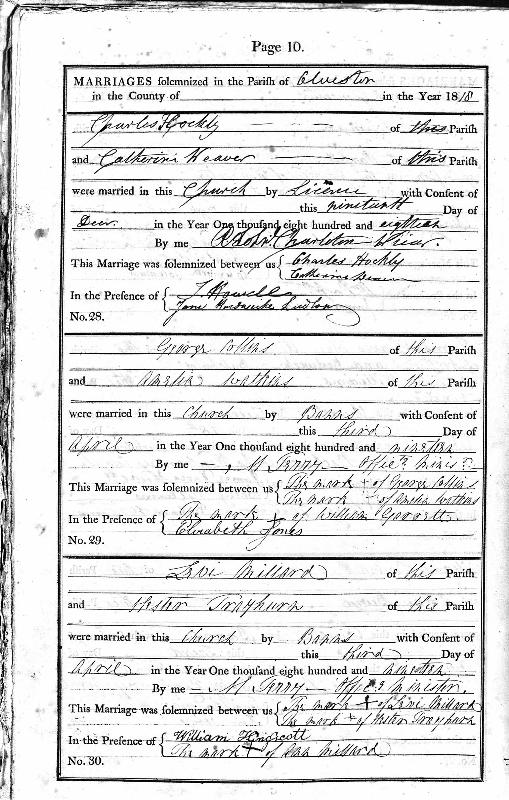 Page 10.
MARRIAGES solemnized in the Parish of Olveston
in the County of in the Year 1818
Charles Hockly of this Parish
and Catherine Weaver of this Parish
were married in this Church by Licence with Consent of
this nineteenth Day of
Decr. in the Year One thousand eight hundred and eighteen
By me Charleton Vicar.
This Marriage was solemnized between us Charles Hockly
Catherine Weaver
In the Presence of J Howell
Jane Ludlow
No. 28.
George Collins of this Parish
and Amelia Watkins of this Parish
were married in this Church by Banns with Consent of
this third Day of
April in the Year One thousand eight hundred and nineteen
By me M Perry Offic.g Minis.r
This Marriage was solemnized between us The mark + of George Collins
The mark + of Amelia Watkins
In the Presence of The mark + of William
Elizabeth Jones
No. 29.
Levi Millard of this Parish
and Hester Trayhurn of this Parish
were married in this Church by Banns with Consent of
this third Day of
April in the Year One thousand eight hundred and nineteen
By me M Perry Offic.g Minister.
This Marriage was solemnized between us The mark + of Levi Millard
The mark + of Hester Trayhurn
In the Presence of William Hingscott
The mark + of Millard
No. 30.